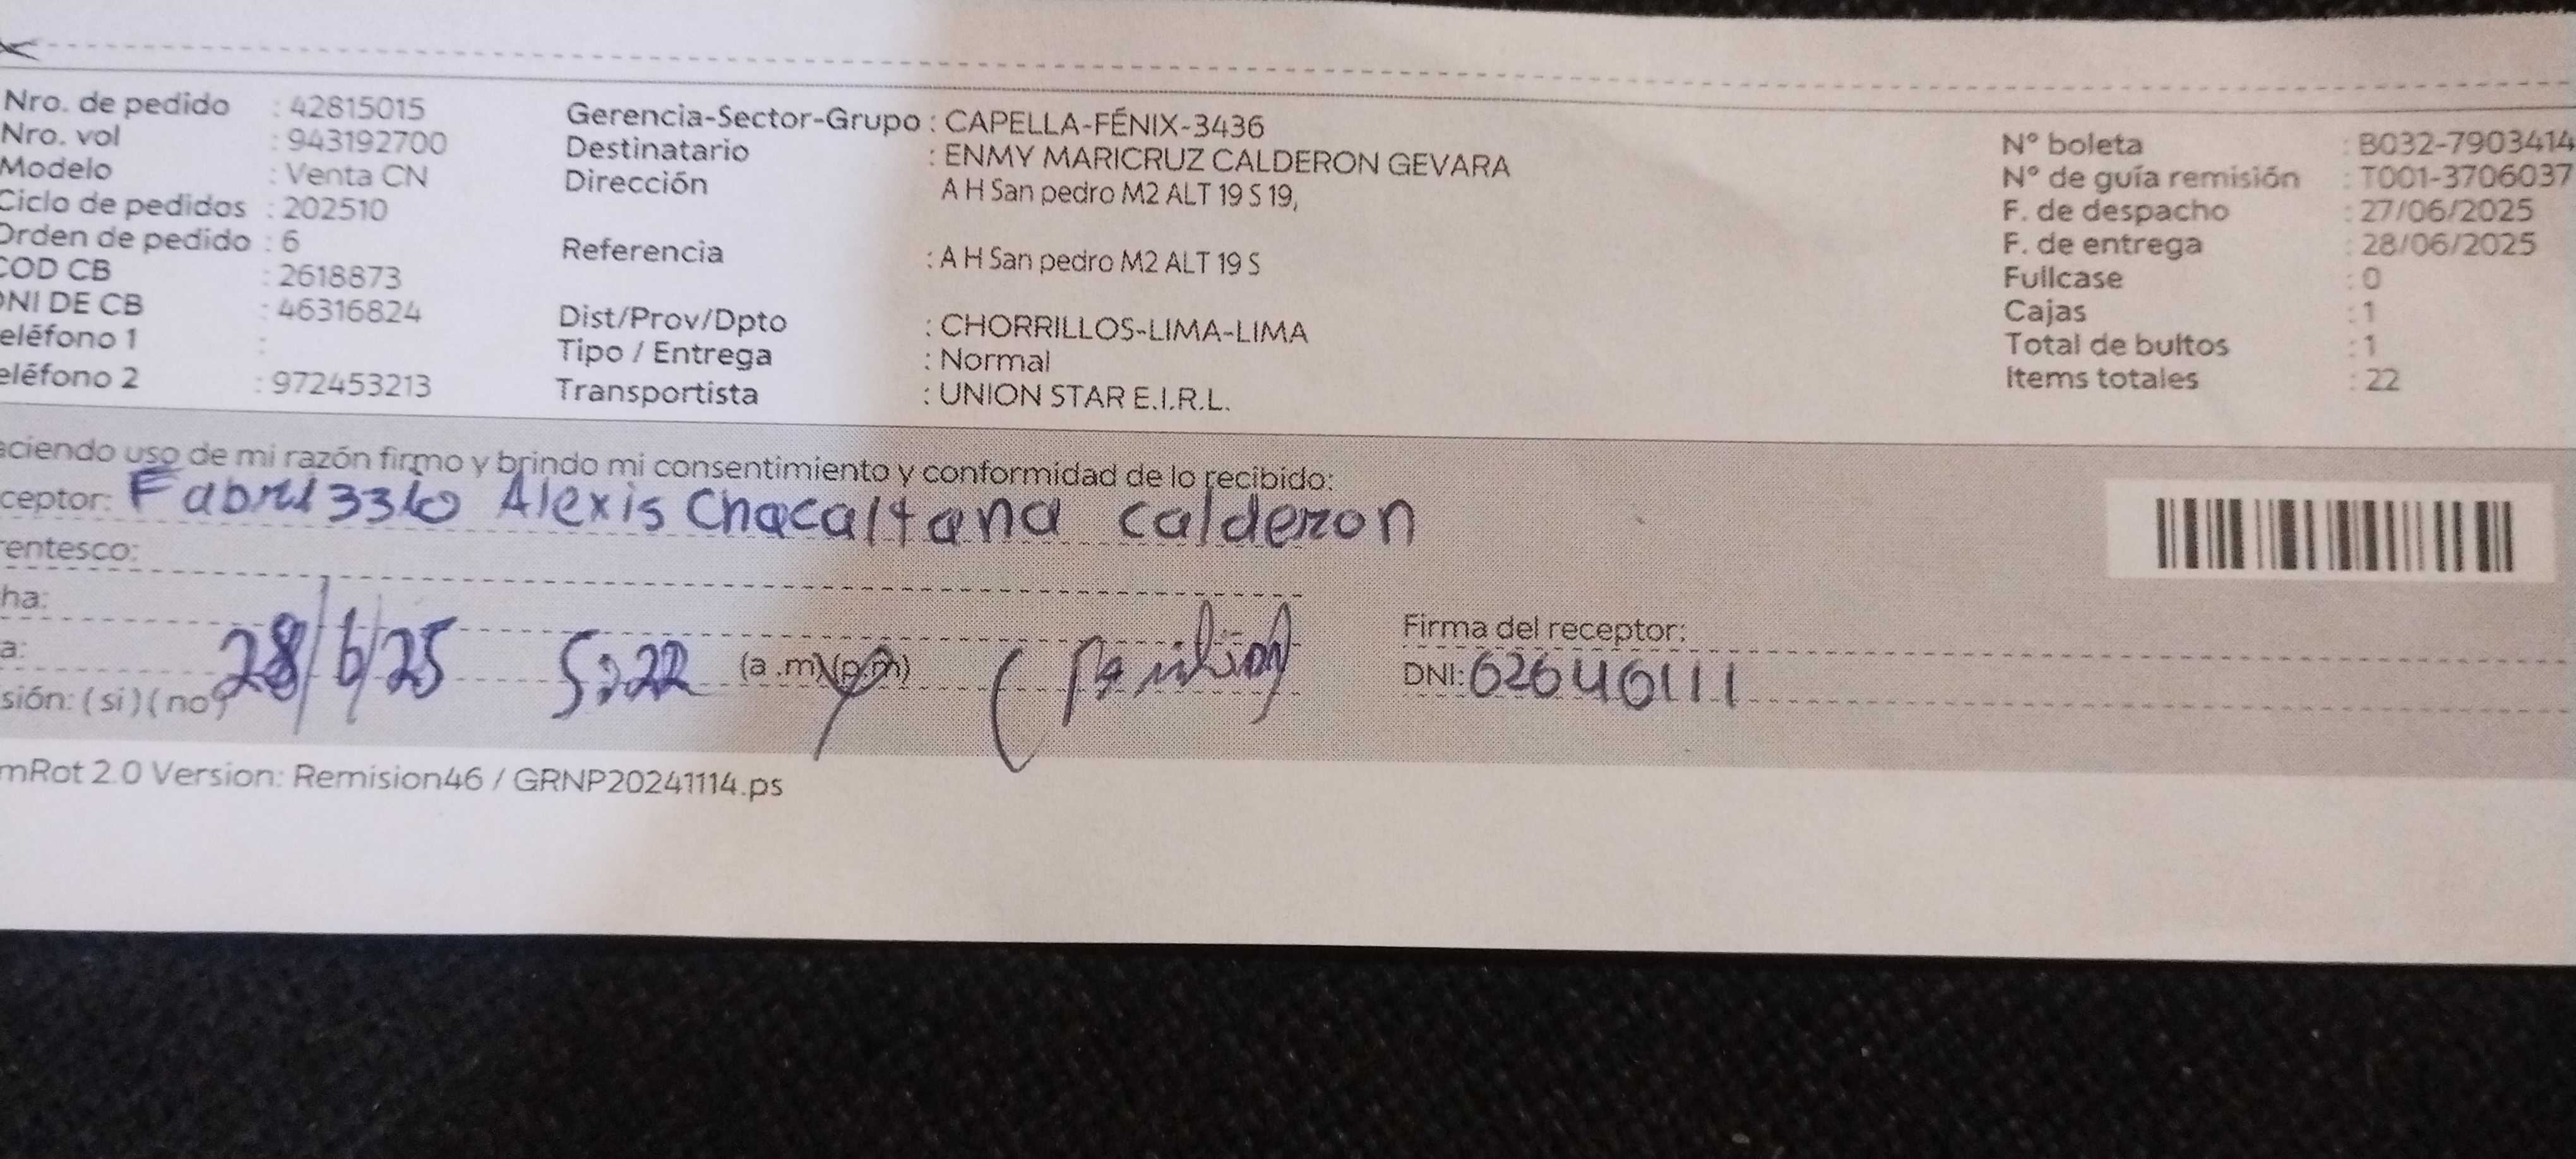 Nro. de pedido : 42815015
Nro. vol : 943192700
Modelo : Venta CN
Ciclo de pedidos : 202510
Orden de pedido : 6
COD CB : 2618873
DNI DE CB : 46316824
eléfono 1 :
eléfono 2 : 972453213
Gerencia-Sector-Grupo : CAPELLA-FÉNIX-3436
Destinatario : ENMY MARICRUZ CALDERON GEVARA
Dirección A H San pedro M2 ALT 19 S 19,
Referencia : A H San pedro M2 ALT 19 S
Dist/Prov/Dpto : CHORRILLOS-LIMA-LIMA
Tipo / Entrega : Normal
Transportista : UNION STAR E.I.R.L.
N° boleta : B032-7903414
N° de guía remisión : T001-3706037
F. de despacho : 27/06/2025
F. de entrega : 28/06/2025
Fullcase : 0
Cajas : 1
Total de bultos : 1
Items totales : 22
aciendo uso de mi razón firmo y brindo mi consentimiento y conformidad de lo recibido:
ceptor: Fabrizzio Alexis Chacaltana calderon
rentesco:
ha:
a: 28/6/25 5:22 (a .m)(p.m)
Firma del receptor:
DNI: 62640111
sión: ( si ) ( no )
mRot 2.0 Version: Remision46 / GRNP20241114.ps